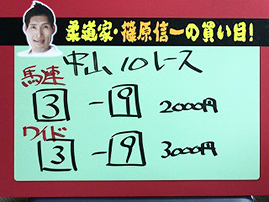 柔道家・篠原信一の買い目!
中山10レース
馬連 3-9 2000円
ワイド 3-9 3000円